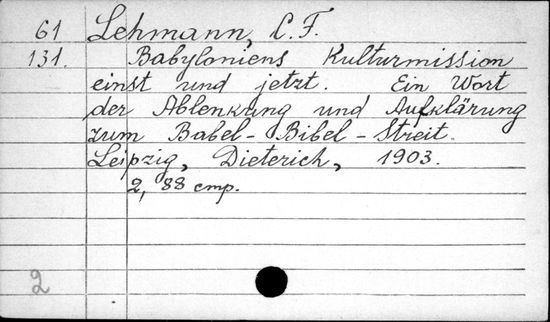 61 Lehmann, C. F.
131. Babyloniens Kulturmission
einst und jetzt. Ein Wort
der Ablenkung und Aufklärung
zum Babel-Bibel-Streit.
Leipzig, Dieterich, 1903.
2, 88 cmp.
2